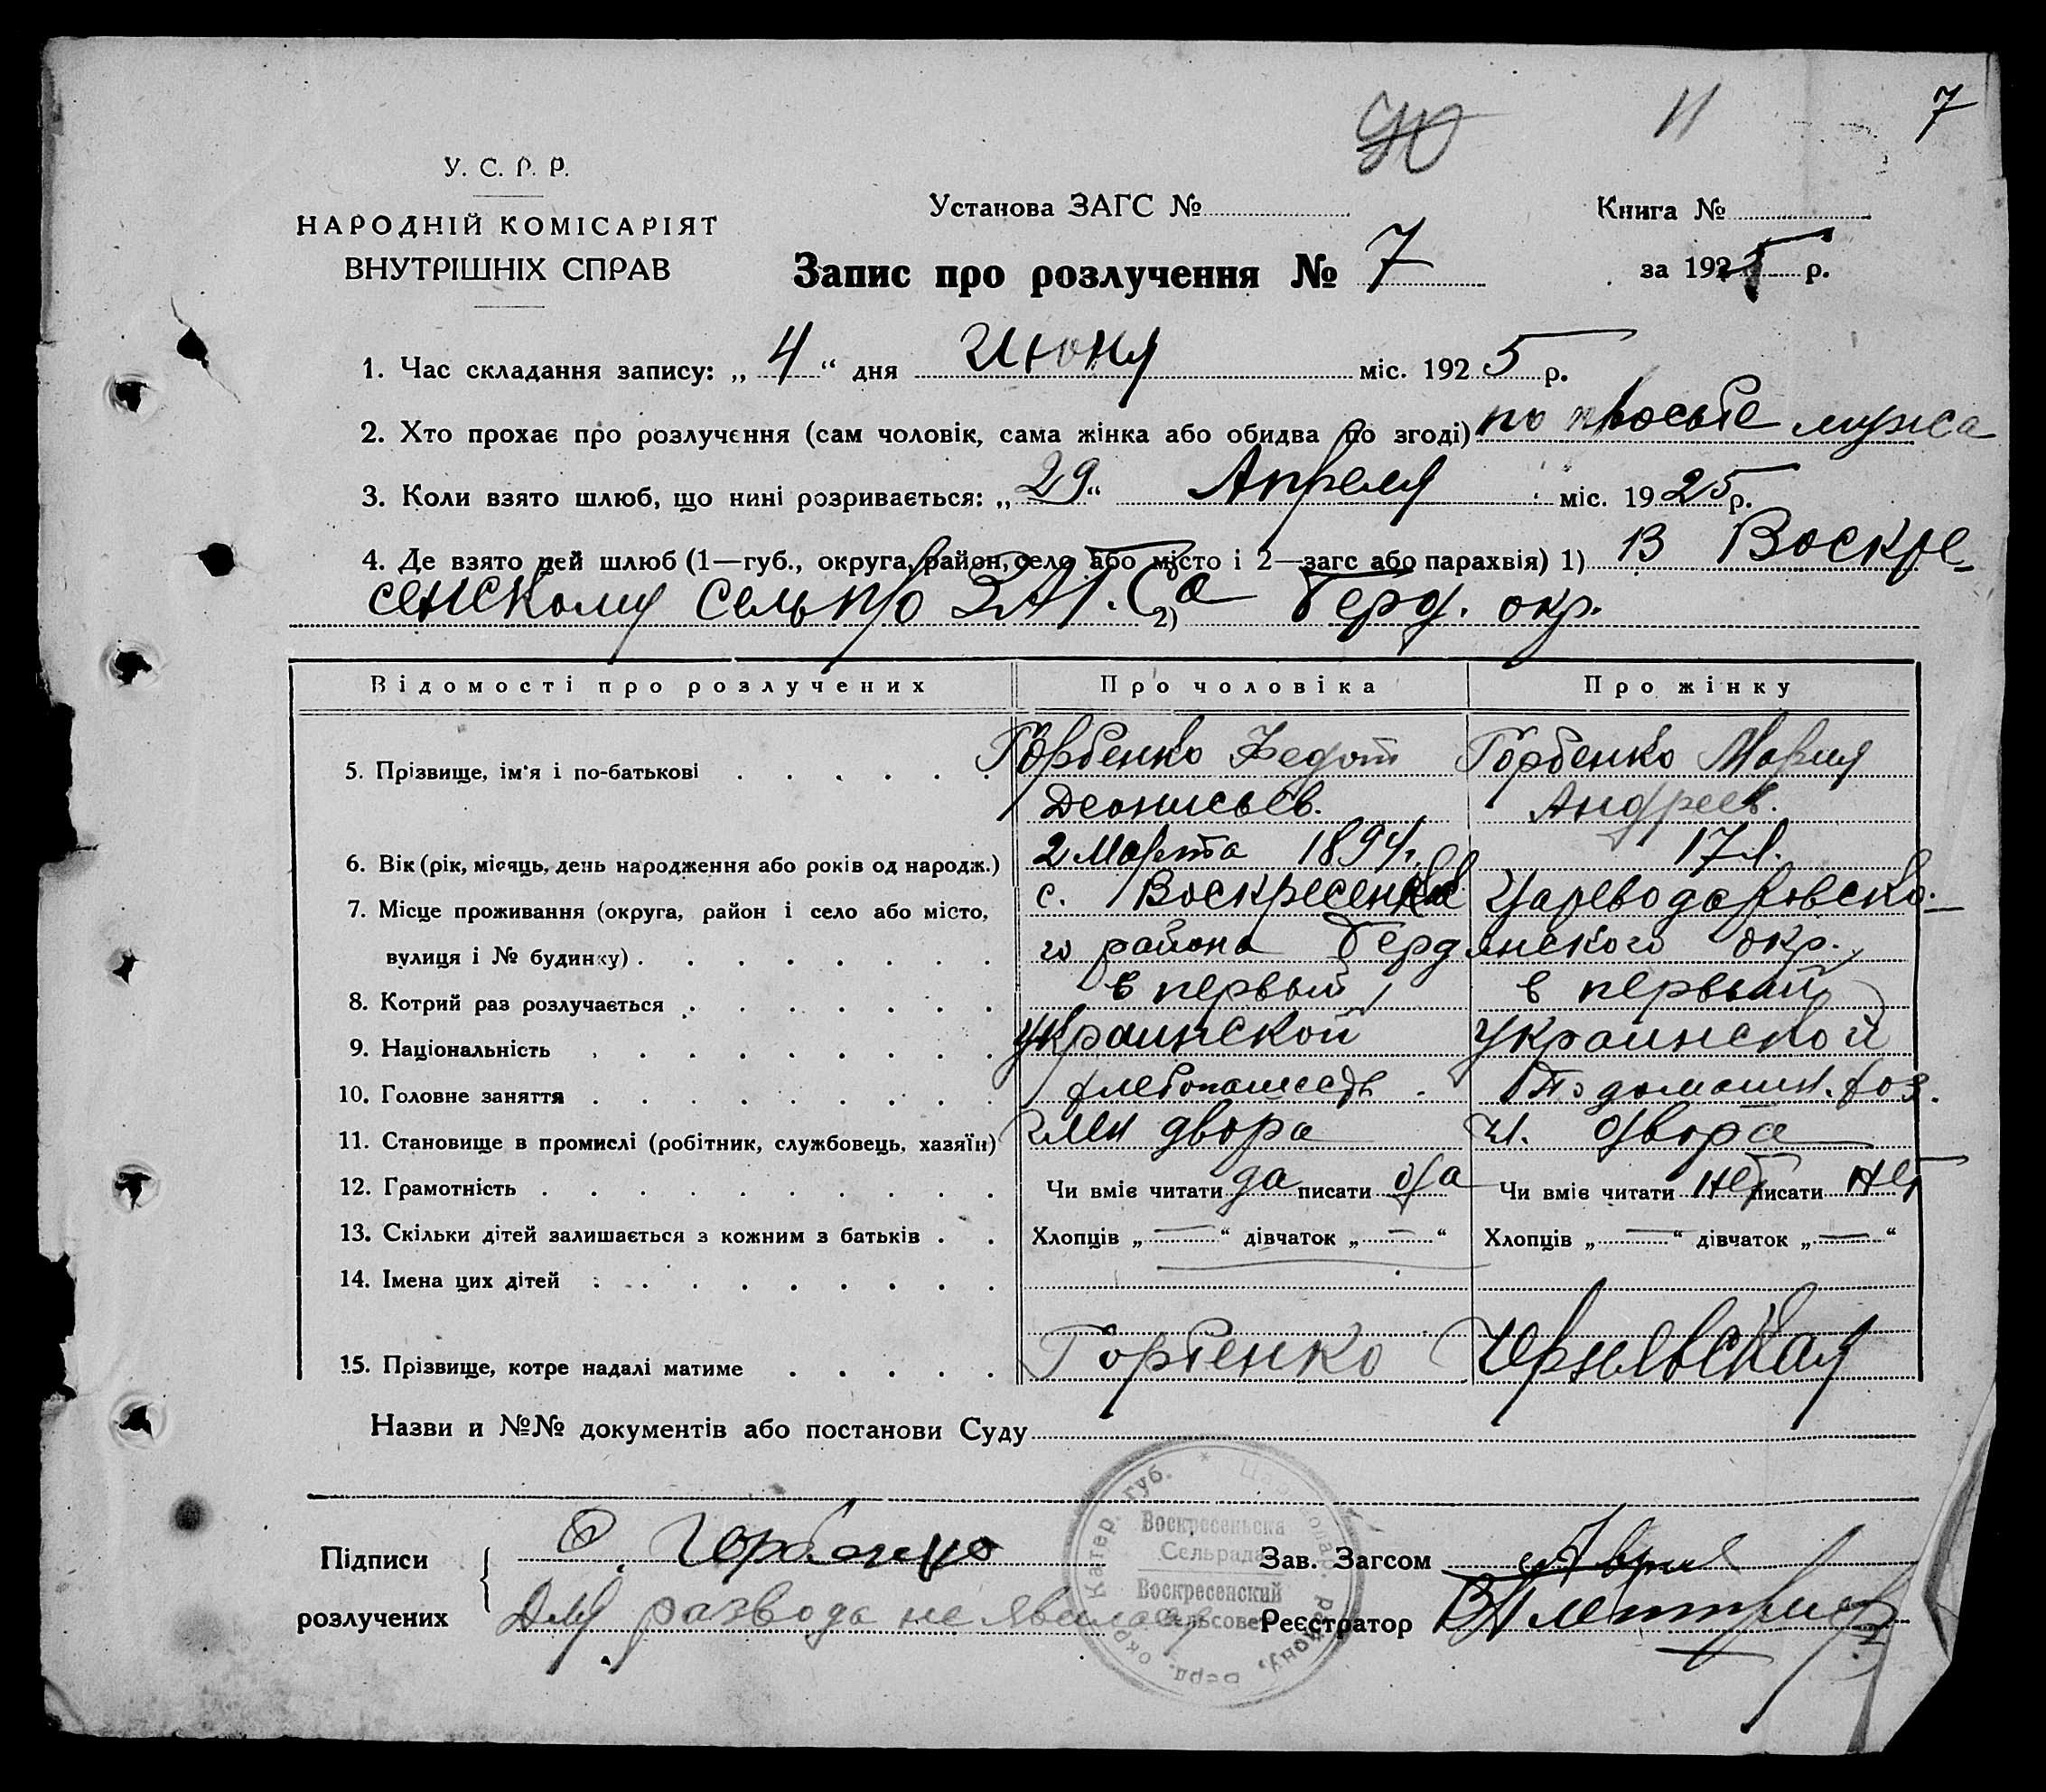 11 7
У. С. Р. Р.
НАРОДНІЙ КОМІСАРІЯТ
ВНУТРІШНІХ СПРАВ
Установа ЗАГС №
Книга №
Запис про розлучення № 7
за 1925 р.
1. Час складання запису: „ 4 “ дня Июня міс. 192 5 р.
2. Хто прохає про розлучення (сам чоловік, сама жінка або обидва по згоді) по просьбе мужа
3. Коли взято шлюб, що нині розривається: „ 29 “ Апреля міс. 19 25 р.
4. Де взято цей шлюб (1—губ., округа, район, село або місто і 2—загс або парахвія) 1) В Воскре-
сенском сель ЗАГСа 2) Берд. окр.
Відомості про розлучених Про чоловіка Про жінку
5. Прізвище, ім'я і по-батькові Горбенко Федот Горбенко Мария
Деонисьев. Андреев.
6. Вік (рік, місяць, день народження або років од народж.) 2 Марта 1894 г. 17 л.
7. Місце проживання (округа, район і село або місто, с. Воскресенка Цареводаровско-
вулиця і № будинку) го района Бердянского окр.
8. Котрий раз розлучається в первый в первый
9. Національність Украинской Украинской
10. Головне заняття хлебопашест. домашн. хоз.
11. Становище в промислі (робітник, службовець, хазяїн) член двора чл. двора
12. Грамотність Чи вміє читати да писати да Чи вміє читати нет писати нет
13. Скільки дітей залишається з кожним з батьків Хлопців „ — “ дівчаток „ — “ Хлопців „ — “ дівчаток „ — “
14. Імена цих дітей
15. Прізвище, котре надалі матиме Горбенко Чернявская
Назви и №№ документів або постанови Суду
Підписи Ф. Горбенко Зав. Загсом
розлучених Для развода не явилась Реєстратор
Катер. губ. Берд. окр. району,
Воскресеньска
Сельрада
Воскресенский
Сельсовет